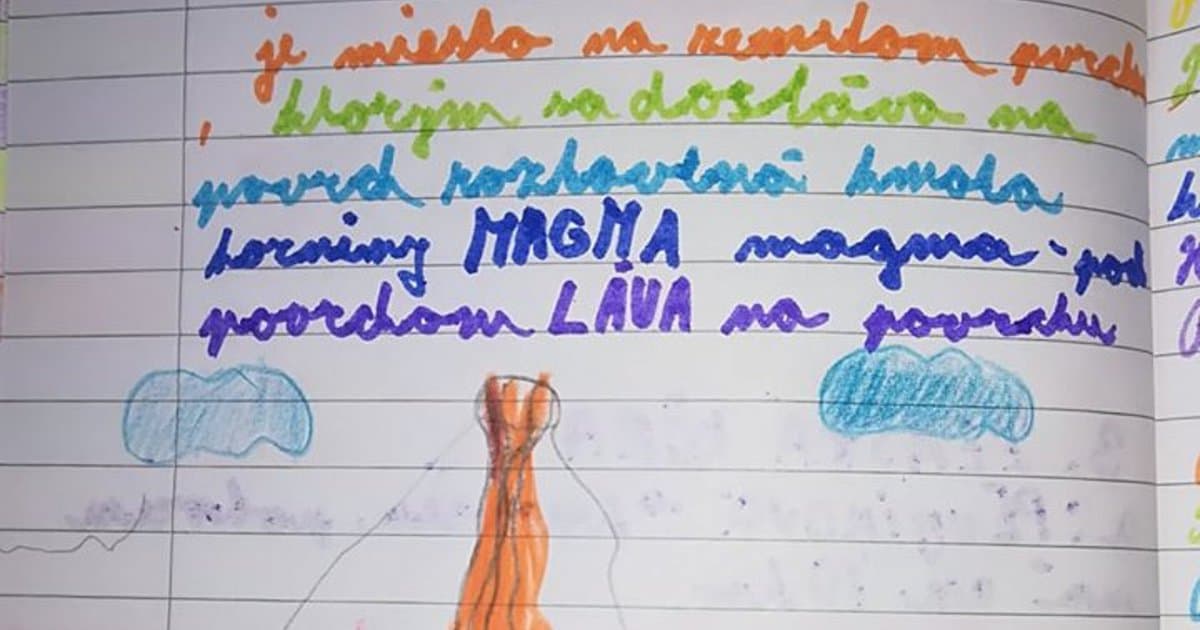 je miesto na zemskom povrchu
, ktorým sa dostáva na
povrch rozžhavená hmota
horniny MAGMA magma - pod
povrchom LÁVA na povrchu